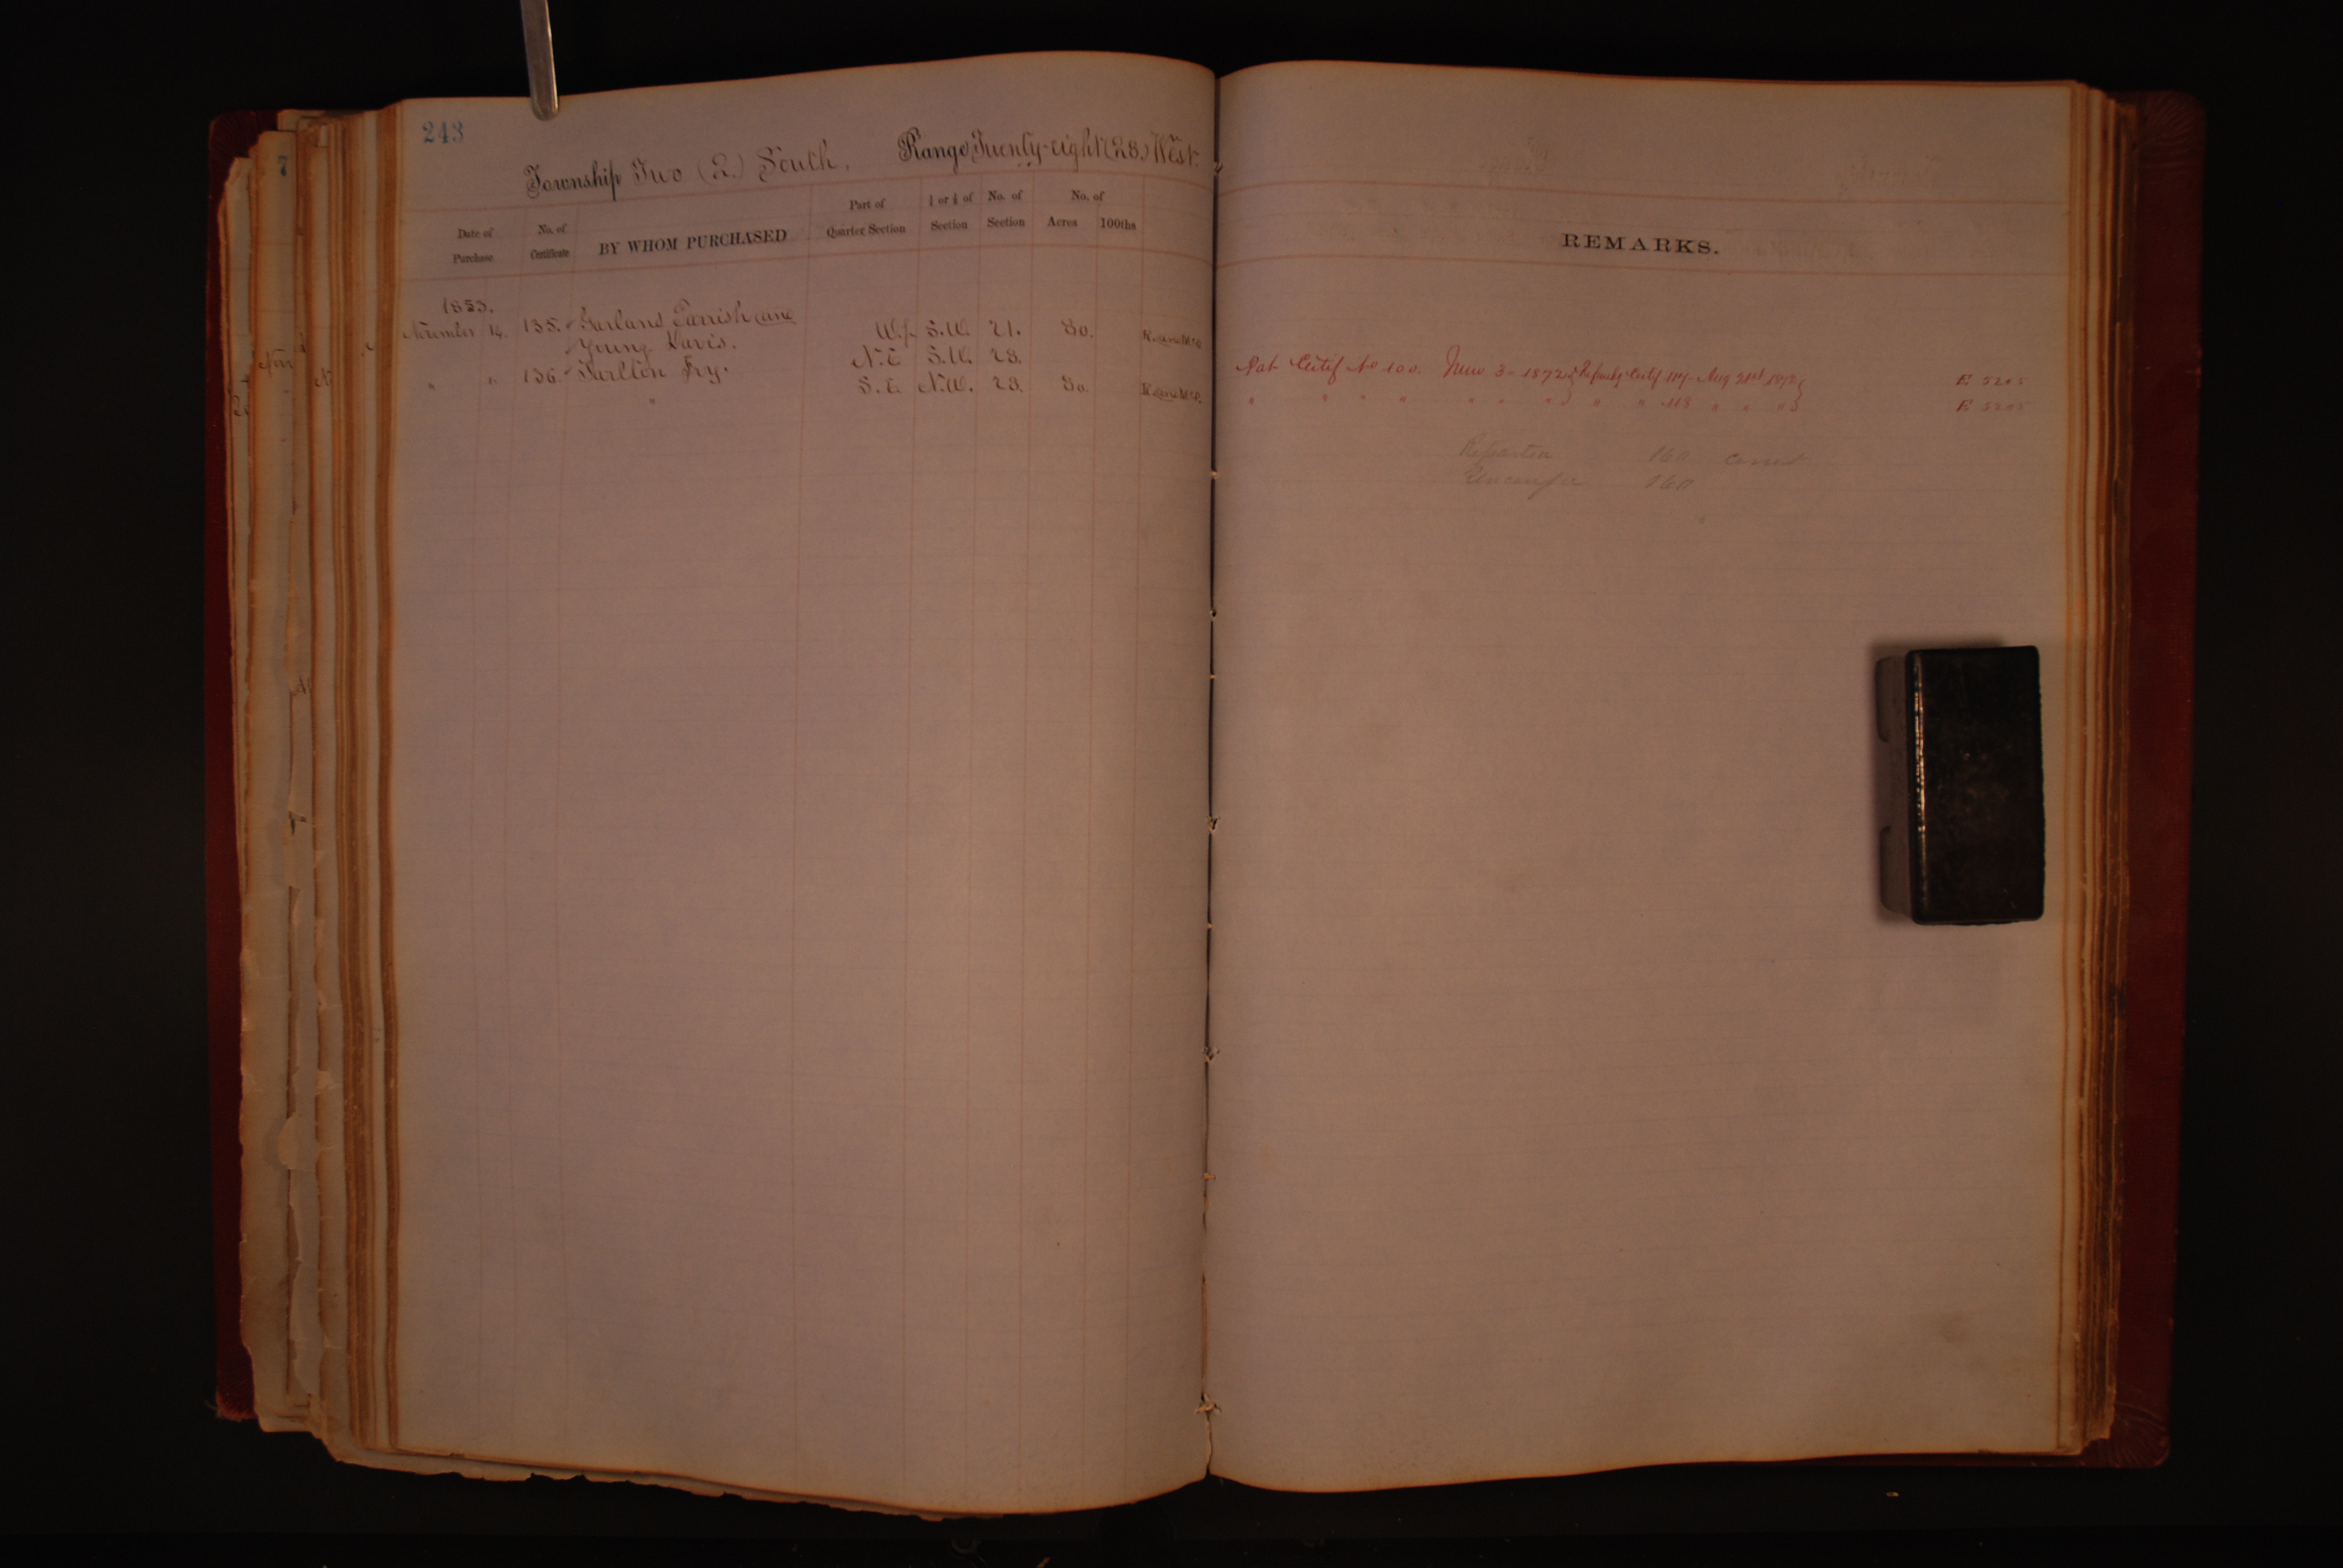 243
Township Two (2.) South. Range Twenty-eight (28.) West.
Date of Purchase No. of Certificate BY WHOM PURCHASED Part of Quarter Section ¼ or ½ of Section No. of Section No. of Acres 100ths
REMARKS.
1853.
November 14. 135. Garland Parrish and W.½ S.W. 21. 80.
Young Davis.
" " 136. Tarlton Fry. N.E S.W. 28.
" S.E. N.W. 28. 80.
Pat Certif No 100. June 3d 1872 Aug 21st 1872 E 5205
" " " " " " " " " 118 " " " E 5205
Reported 160 correct
160
7